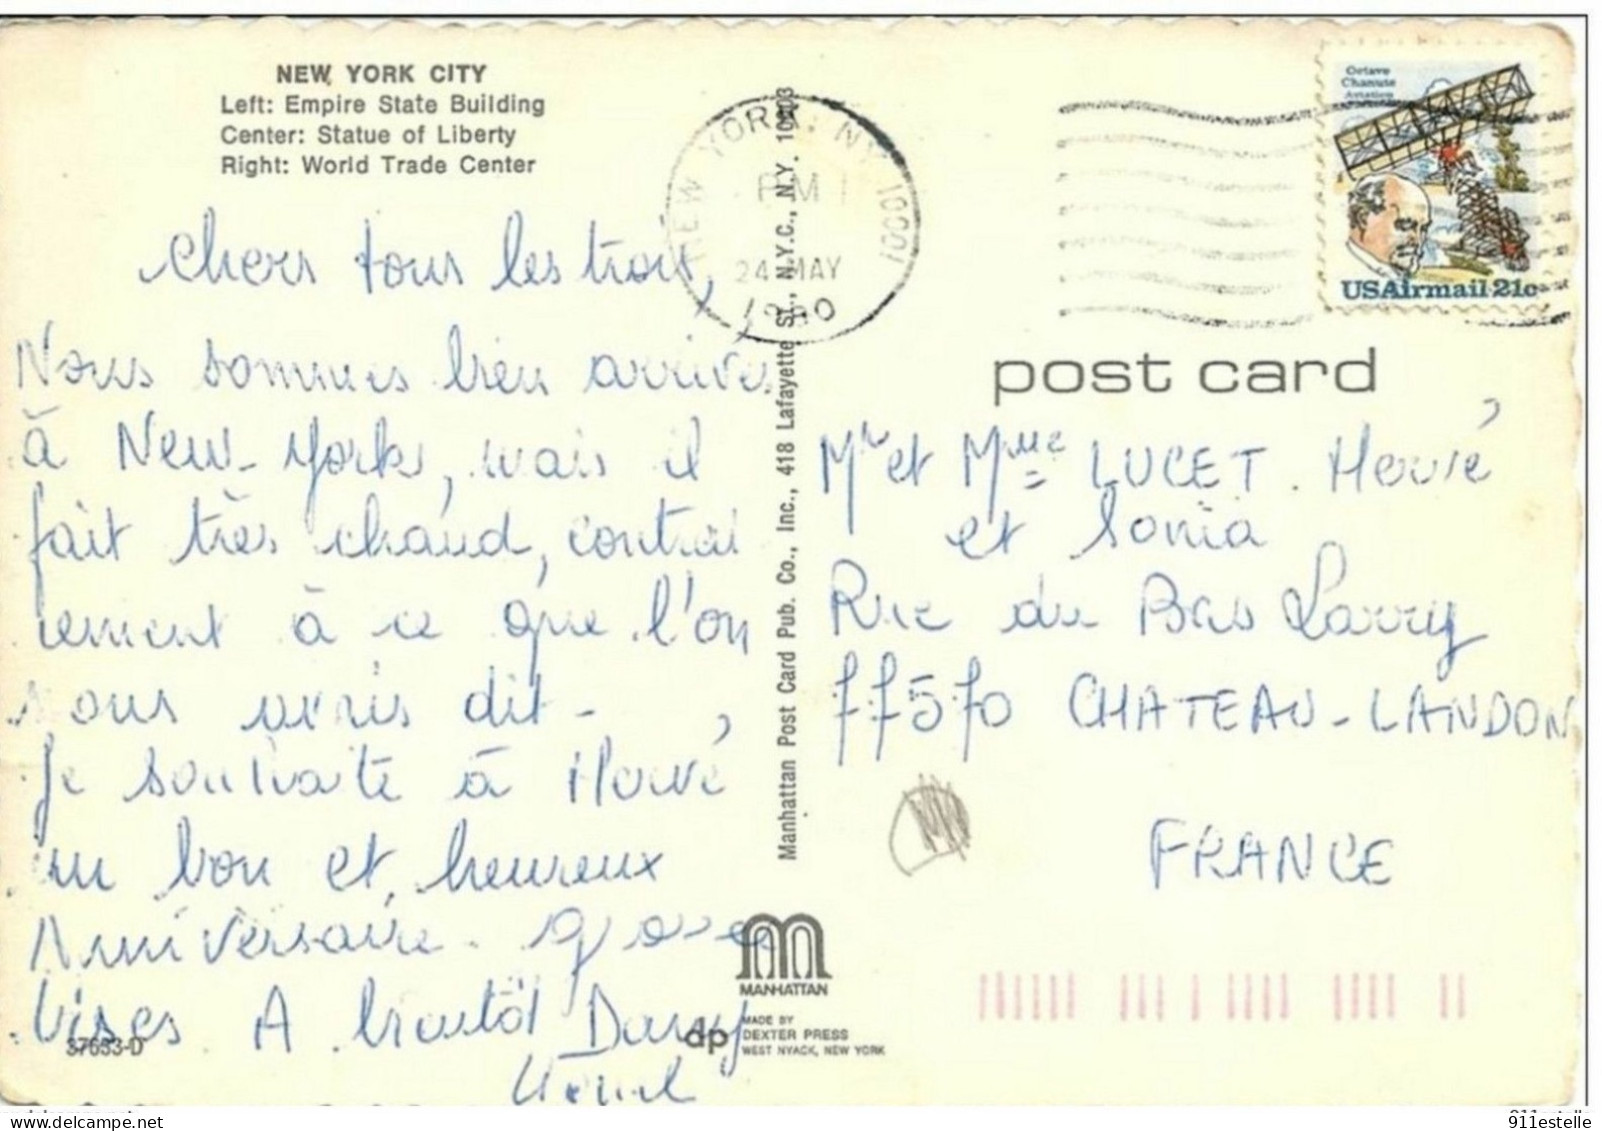 NEW YORK CITY
Left: Empire State Building
Center: Statue of Liberty
Right: World Trade Center
chers tous les trois,
Nous sommes bien arrivés
à New-York, mais il
fait très chaud, contrai
rement à ce que l'on
nous avais dit-
Je souhaite à Hervé
un bon et heureux
Anniversaire. grosses
bises A bientôt Dany
37633-D
Manhattan Post Card Pub. Co., Inc., 418 Lafayette St., N.Y.C., N.Y. 10003
MANHATTAN
dp MADE BY
DEXTER PRESS
WEST NYACK, NEW YORK
NEW YORK, NY 10001
PM
24 MAY
1980
Octave
Chanute
Aviation
USAirmail 21c
post card
Mr et Mme LUCET Hervé
et Sonia
Rue du Bas Larry
77570 CHATEAU-LANDON
FRANCE
911estelle